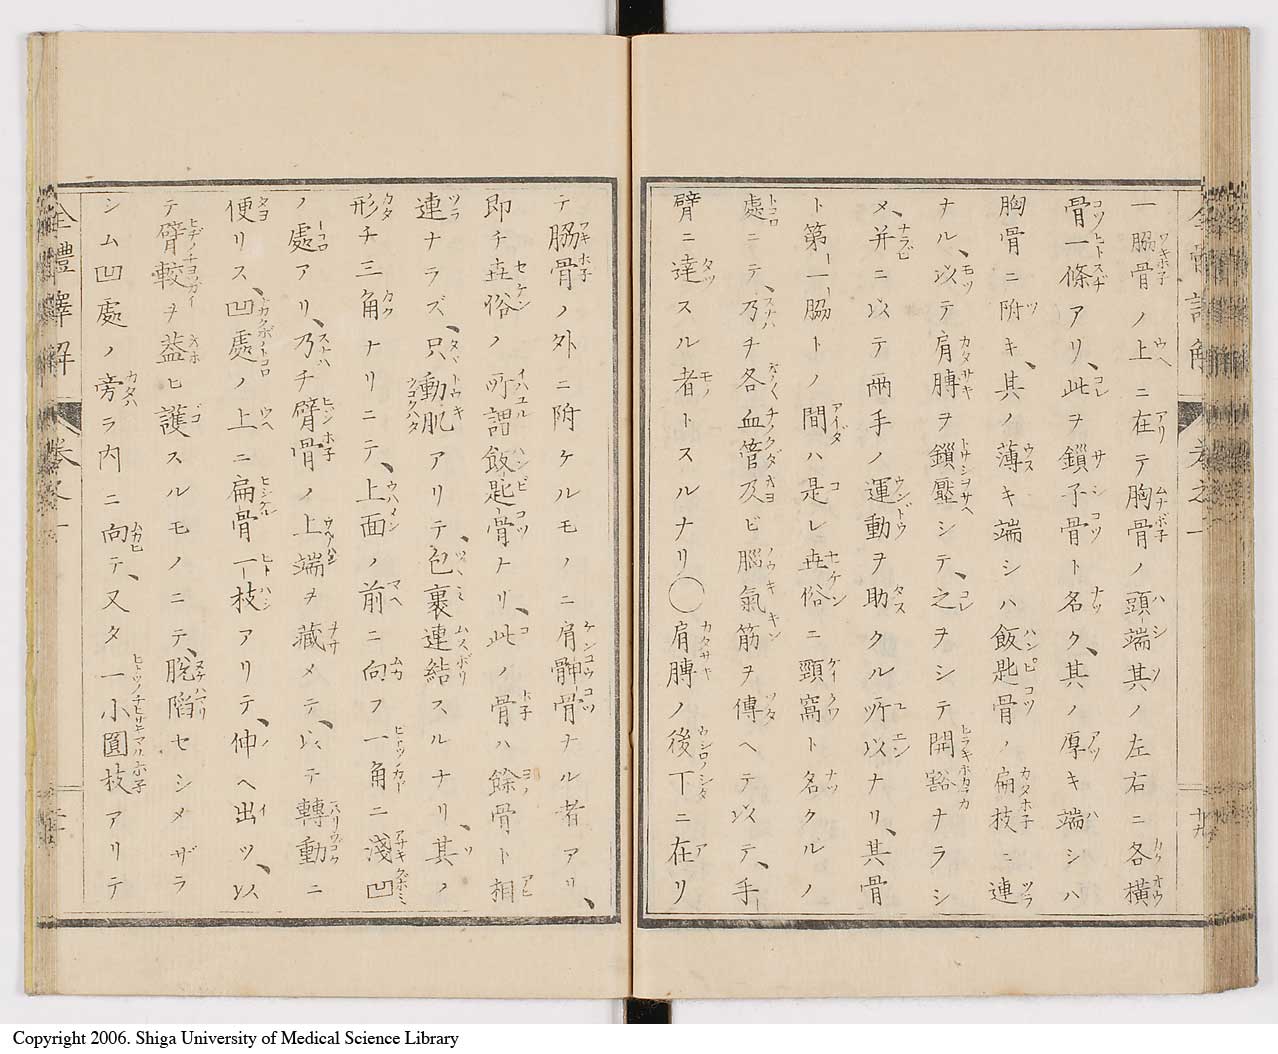 一脇骨ノ上ニ在テ胸骨ノ頭端其ノ左右ニ各横
骨一條アリ、此ヲ鎖子骨ト名ク、其ノ厚キ端シハ
胸骨ニ附キ、其ノ薄キ端シハ飯匙骨ノ扁枝ニ連
ナル、以テ肩膊ヲ鎖壓シテ、之ヲシテ開豁ナラシ
メ、并ニ以テ兩手ノ運動ヲ助クル所以ナリ、其骨
ト第一脇トノ間ハ是レ世俗ニ頸窩ト名クルノ
處ニテ、乃チ各血管及ビ腦氣筋ヲ傳ヘテ以テ、手
臂ニ達スル者トスルナリ〇肩膊ノ後下ニ在リ
テ脇骨ノ外ニ附ケルモノニ肩胛骨ナル者アリ、
即チ世俗ノ所謂飯匙骨ナリ、此ノ骨ハ餘骨ト相
連ナラズ、只動肌アリテ包裹連結スルナリ、其ノ
形チ三角ナリニテ、上面ノ前ニ向フ一角ニ淺凹
ノ處アリ、乃チ臂骨ノ上端ヲ藏メテ、以テ轉動ニ
便リス、凹處ノ上ニ扁骨一枝アリテ、伸ヘ出ツ、以
テ臂骱ヲ蓋ヒ護スルモノニテ、脱陷セシメザラ
シム凹處ノ旁ラ内ニ向テ、又タ一小圓枝アリテ
全體譯解 卷之一
Copyright 2006. Shiga University of Medical Science Library